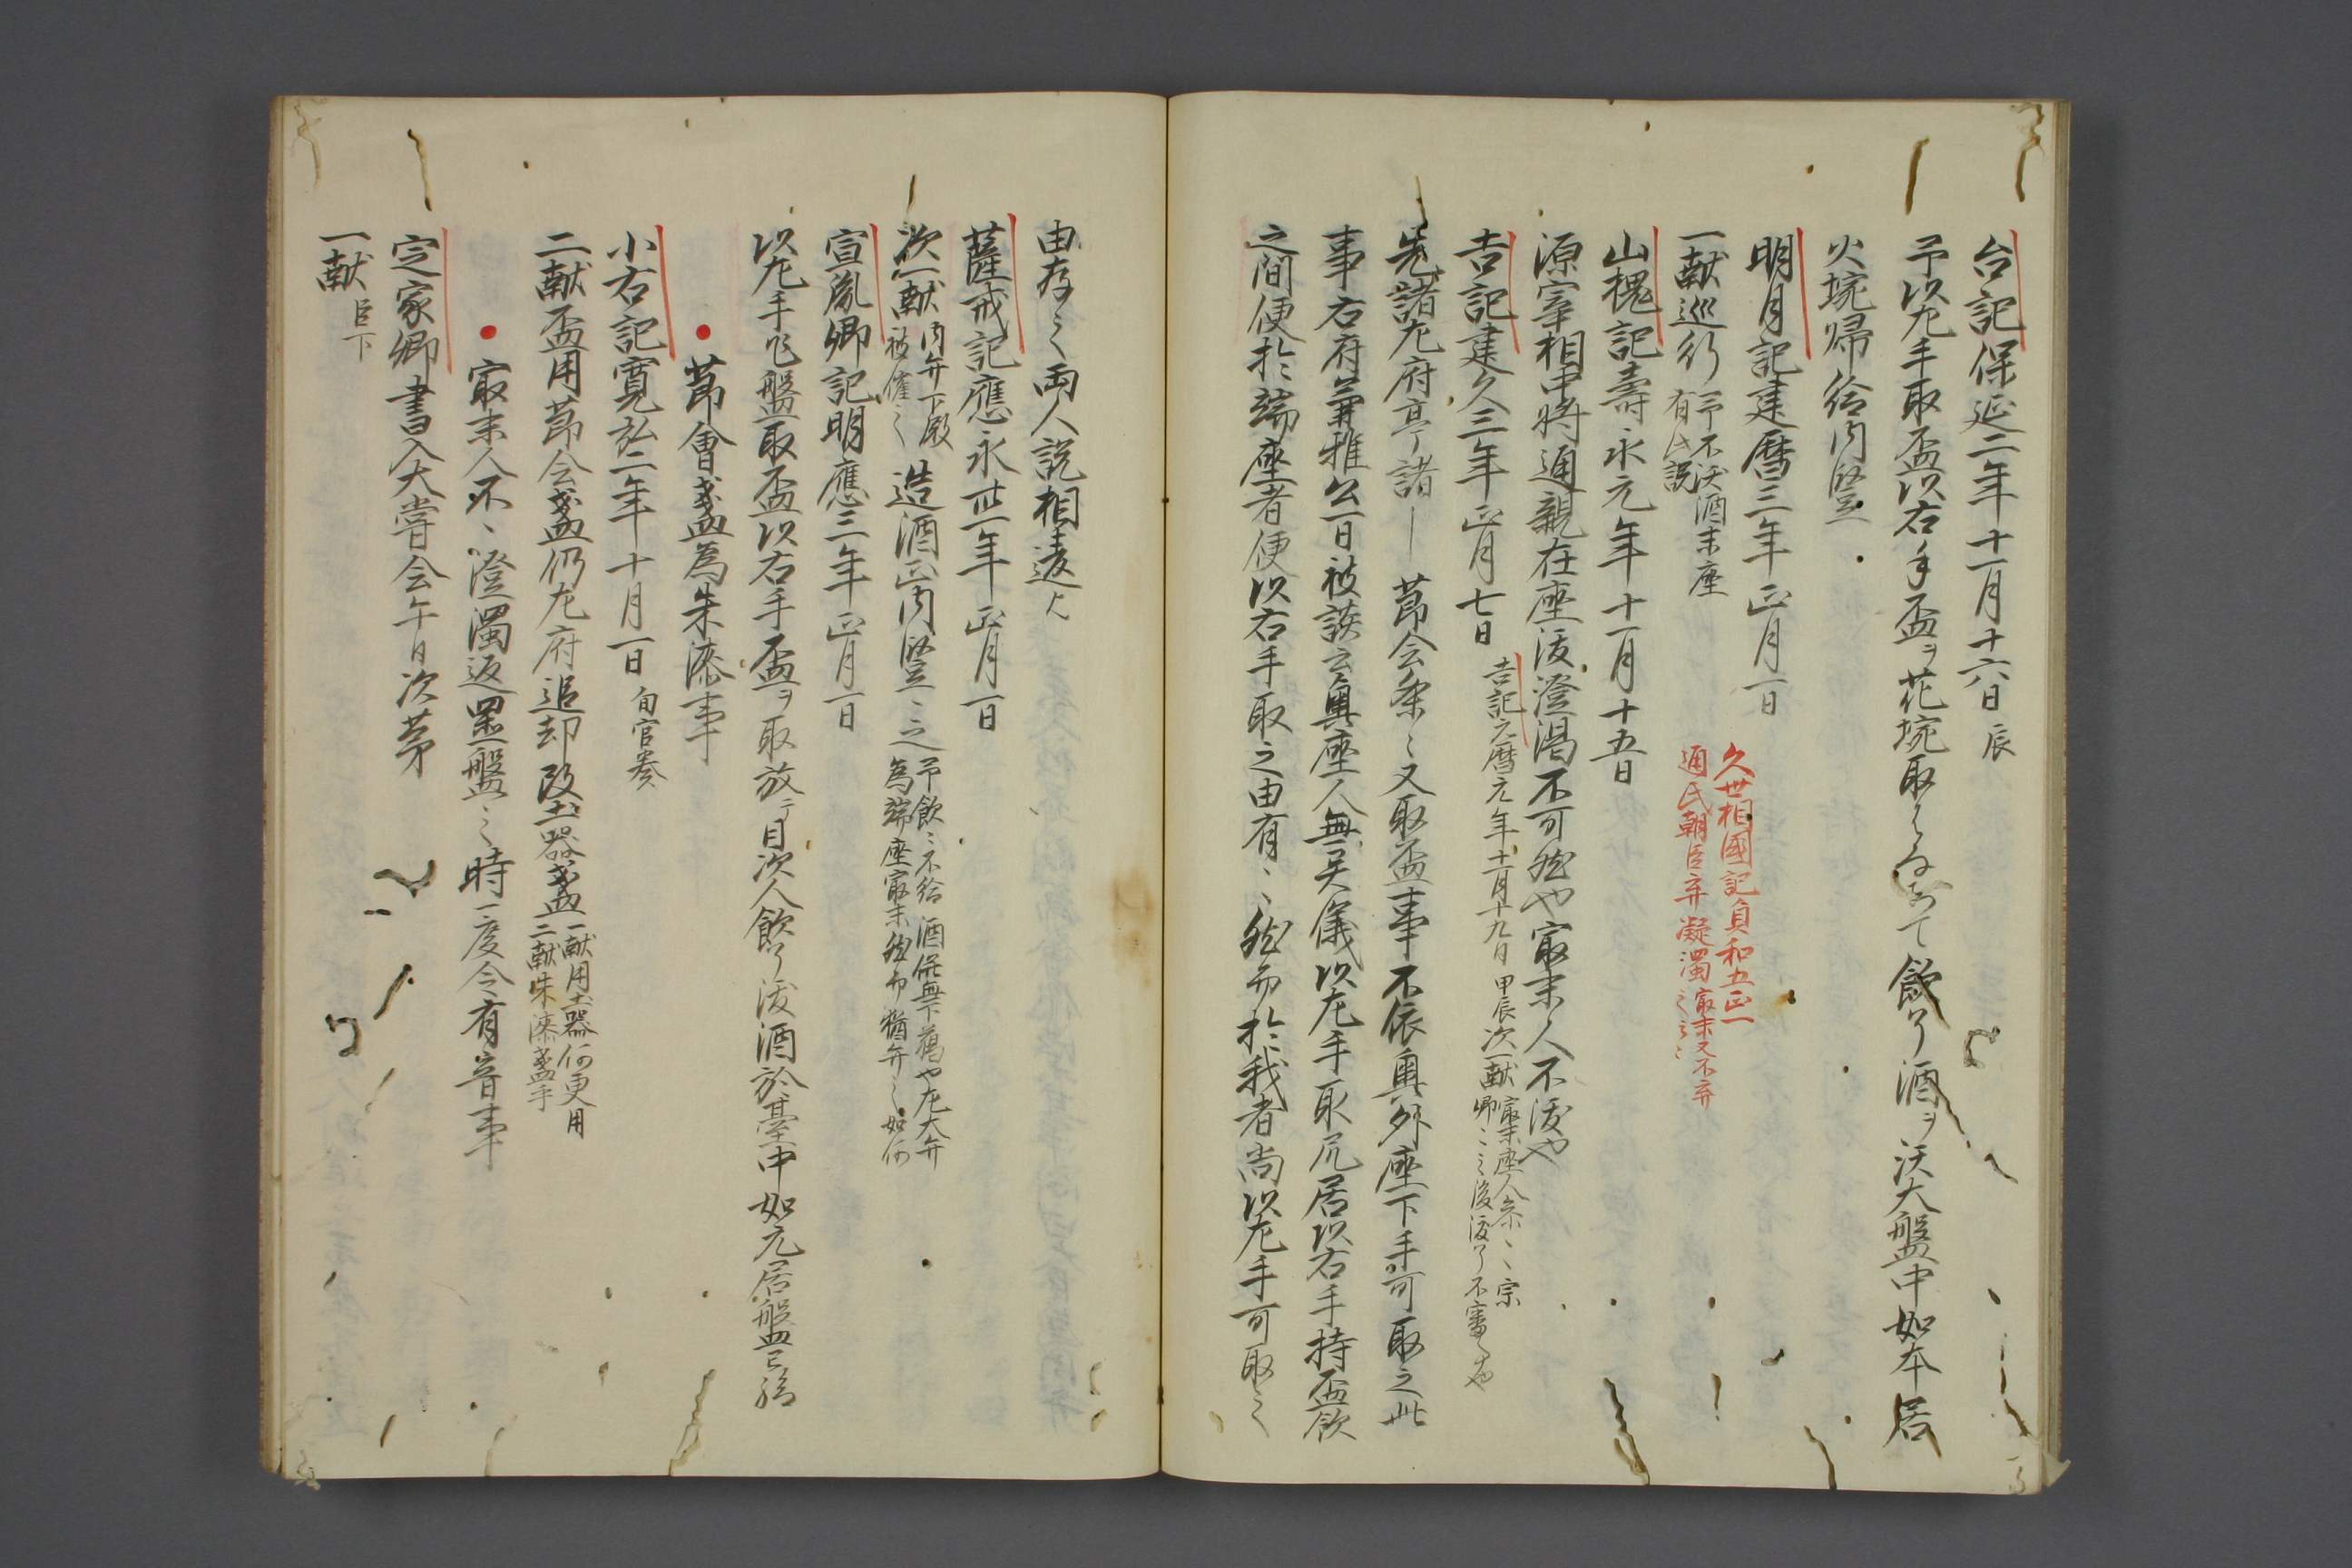 台記保延二年十一月十六日辰
予以左手取盃以右手盃ヲ花埦取て飲了酒ヲ沃大盤中如本居
火埦帰給内竪
明月記建暦三年正月一日
一献巡行予不沃酒末座
有此説
久世相國記貞和五正一
通氏朝臣弃凝濁最末又不弃
之云々
山槐記壽永元年十一月十五日
源宰相中将通親在座沃澄濁不可然也最末人不沃也
吉記建久三年正月七日
吉記元暦元年十一月十九日甲辰次一献最末座人宗
卿後沃了不審也
先諸左府亭諸｜節会条々又取盃事不依奥外座下手可取之此
事右府兼雅公一日被談云奥座人無異儀以左手取尻居以右手持盃飲
之間便於端座者便以右手取之由有〻然而於我者尚以左手可取之
由存之両人説相違歟
薩戒記應永卅一年正月一日
次一献内弁下殿
被催之造酒正内竪〻之予飲〻不給酒依無下臈也左大弁
為端座最末然而猶弃之如何
宣胤卿記明應三年正月一日
以左手乍盤取盃以右手盃ヲ取放テ目次人飲了沃酒於臺中如元居盤
●節會盞為朱漆事
小右記寛弘二年十月一日旬官奏
二献盃用節会盞仍左府追却改土器盞一献用土器何更用
二献朱漆盞乎
●最末人不〻澄濁返置盤之時一度令有音事
定家卿書入大嘗会午日次第
一献臣下